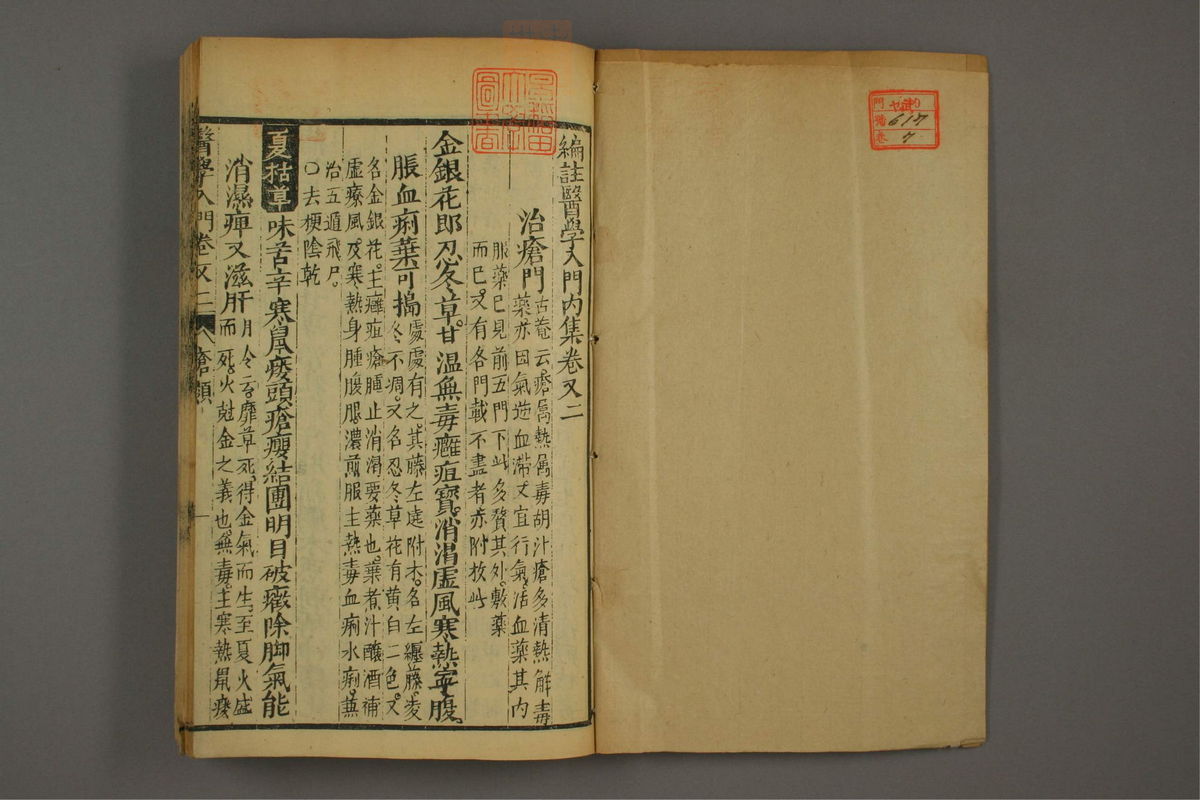 編註醫學入門内集卷又二
治瘡門
古菴云瘡属熱属毒胡汁瘡多清熱解毒
藥亦因氣逆血滯又宜行氣活血藥其内
服藥已見前五門下此多贅其外敷藥
而已又有各門載不盡者亦附于此
金銀花即忍冬草甘温無毒癰疽寶消渴虚風寒熱寧腹
脹血痢葉可搗
處處有之其藤左遶附木名左纏藤凌
冬不凋又名忍冬草花有黄白二色又
名金銀花主癰疽瘡腫止消渴要藥也葉煮汁釀酒補
虚療風及寒熱身腫腹脹濃煎服主熱毒血痢水痢兼
治五遁飛尸
〇去梗陰乾
夏枯草味苦辛寒鼠瘻頭瘡癭結團明目破癥除脚氣能
消濕痺又滋肝
月令云靡草死得金氣而生至夏火盛
而死火尅金之義也無毒主寒熱鼠瘻
醫學入門卷又二
瘡類
門
号
卷
617
7